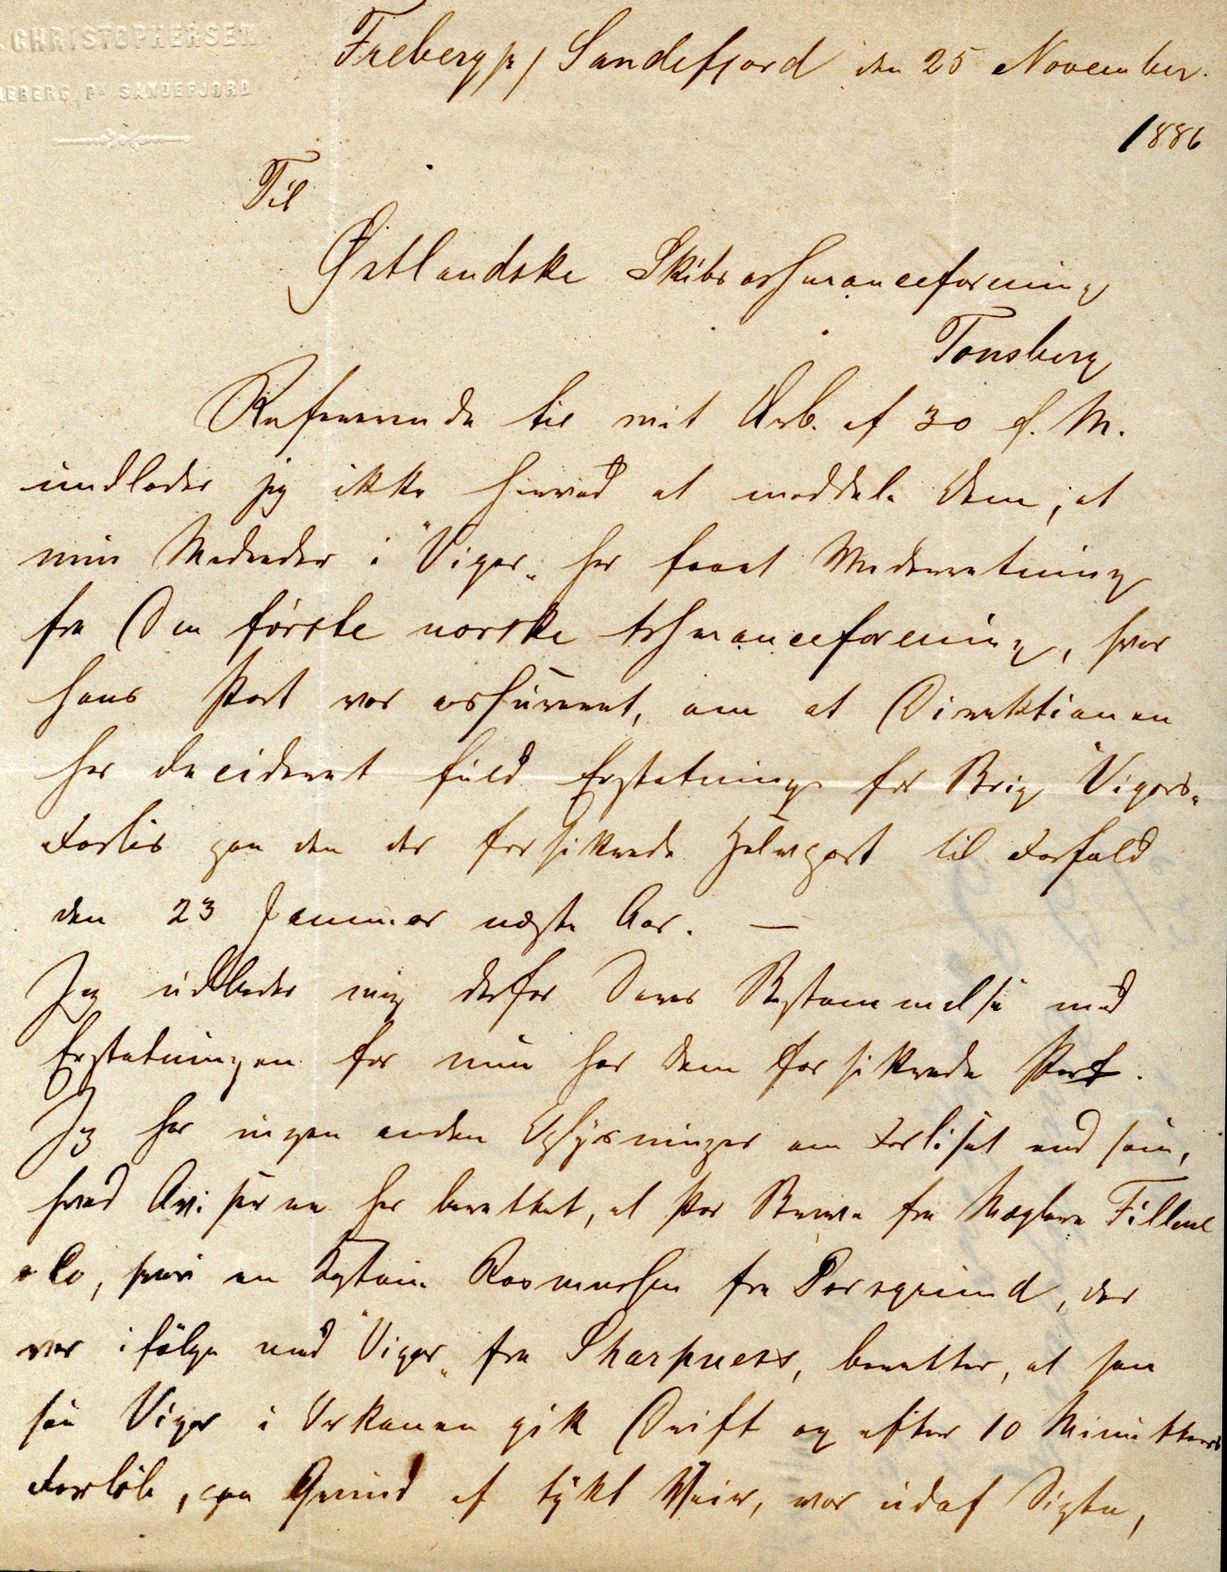 CHRISTOPHERSEN
FREBERG Pr SANDEFJORD
Freberg p/ Sandefjord den 25 November
1886
Til
Østlandske Skibsassuranceforening
Tønsberg
Refererende til mit Arb. af 30 f. M.
undlader jeg ikke herved at meddele Dem, at
min Medreder i "Vigor" har faaet Underretning
fra Den første norske Assuranceforening, hvor
hans Part var assureret, om at Direktionen
har decideret fuld Erstatning for Brig "Vigors"
Forlis paa den der forsikrede Halvpart til Forfald
den 23 Januar næste Aar. —
Jeg udbeder mig derfor Deres Bestemmelse med
Erstatningen for min hos Dem forsikrede Part.
Jeg har ingen anden Oplysninger om Forliset end som,
hvad Aviserne har berettet, at per Brev fra Mæglere Fillmel
& Co, hvori en Kaptain Rasmussen fra Porsgrund, der
var ifølge med "Vigor" fra Sharpness, beretter, at han
saa Vigor i Orkanen gik Drift og efter 10 Minutters
Forløb, paa Grund af tykt Veir, var udaf Sigte,